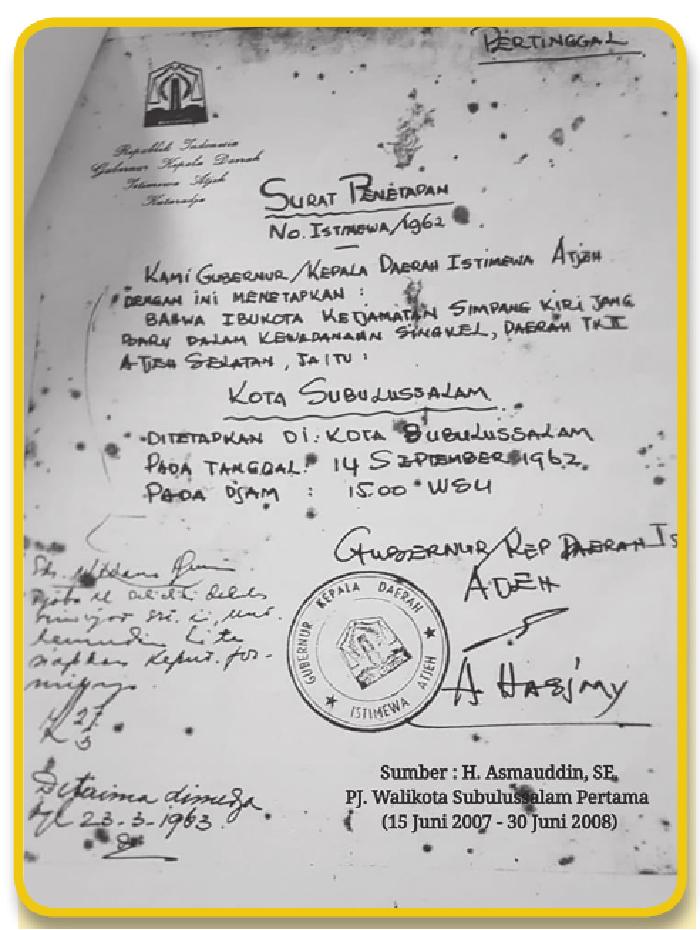 PERTINGGAL
Republik Indonesia
Gubernur Kepala Daerah
Istimewa Atjeh
Kutaradja
SURAT PENETAPAN
No. ISTIMEWA/1962
KAMI GUBERNUR/KEPALA DAERAH ISTIMEWA ATJEH
DENGAN INI MENETAPKAN :
BAHWA IBUKOTA KETJAMATAN SIMPANG KIRI JANG
BARU DALAM KEWADANAAN SINGKEL, DAERAH TK II
ATJEH SELATAN, JAITU :
KOTA SUBULUSSALAM
DITETAPKAN DI : KOTA SUBULUSSALAM
PADA TANGGAL : 14 SEPTEMBER 1962.
PADA DJAM : 15.00 WSU
GUBERNUR/KEP DAERAH IS
ATJEH
GUBERNUR KEPALA DAERAH
ISTIMEWA ATJEH
A HASJMY
Diterima dimedja
tgl 23-3-1963
Sumber : H. Asmauddin, SE,
PJ. Walikota Subulussalam Pertama
(15 Juni 2007 - 30 Juni 2008)